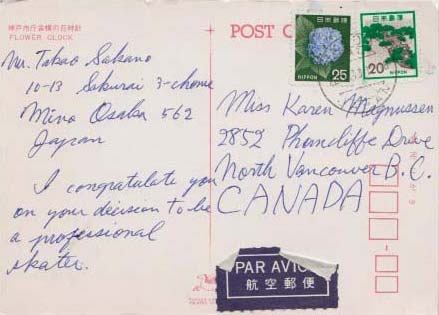 神戸市庁舎横の花時計
FLOWER CLOCK
Mr. Takao Sakano
10-13 Sakurai 3-chome
Mino Osaka 562
Japan
I congratulate you
on your decision to be
a professional
skater.
POST
日本郵便
NIPPON
25
日本郵便
20
NIPPON
Miss Karen Magnussen
2852 Phancliffe Drive
North Vancouver B.C.
CANADA
PAR AVION
航空郵便